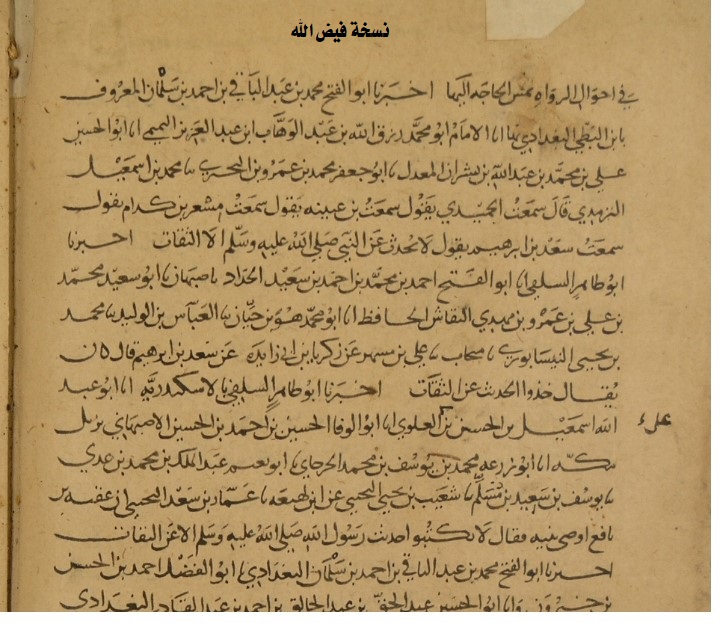 نسخة فيض الله
في احوال الرواه بمس الحاجه اليها اخبرنا ابو الفتح محمد بن عبد الباقي بن احمد بن سلمان المعروف
بابن البطي البغدادي بها انا الامام ابو محمد رزق الله بن عبد الوهاب ابن عبد العزيز التميمي انا ابو الحسين
علي بن محمد بن عبد الله بن بشران المعدل ابو جعفر محمد بن عمرو بن البختري محمد بن اسمعيل
الترمذي قال سمعت الحميدي يقول سمعت بن عيينه يقول سمعت مسعر بن كدام يقول
سمعت سعد بن ابرهيم يقول لا يحدث عن النبي صلى الله عليه وسلم الا الثقات اخبرنا
ابو طاهر السلفي انا ابو الفتح احمد بن محمد بن احمد بن سعيد الحداد باصبهان ابو سعيد محمد
بن علي بن عمرو بن مهدي النقاش الحافظ انا ابو محمد هو بن حيان العباس بن الوليد محمد
بن يحيى النيسابوري منجاب علي بن مسهر عن زكريا بن ابي زايدة عن سعد بن ابرهيم قال كان
يقال خذوا الحديث عن الثقات اخبرنا ابو طاهر السلفي بالاسكندرية انا ابو عبد
الله اسمعيل بن الحسن بن علي العلوي انا ابو الوفا الحسين بن احمد بن الحسين الاصبهاني نزيل
مكه انا ابو زرعه محمد بن يوسف بن محمد الجرجاني ابو نعيم عبد الملك بن محمد بن عدي
يوسف بن سعيد بن مسلم شعيب بن يحيى التجيبي عن ابن لهيعه عمار بن سعد التجيبي ان عقبه بن
نافع اوصى بنيه فقال لا تكتبوا حديث رسول الله صلى الله عليه وسلم الا عن الثقات
اخبرنا ابو الفتح محمد بن عبد الباقي بن احمد بن سلمان البغدادي ابو الفضل احمد بن الحسن
بن خيرون وانا ابو الحسين عبد الحق بن عبد الخالق بن احمد بن عبد القادر البغدادي